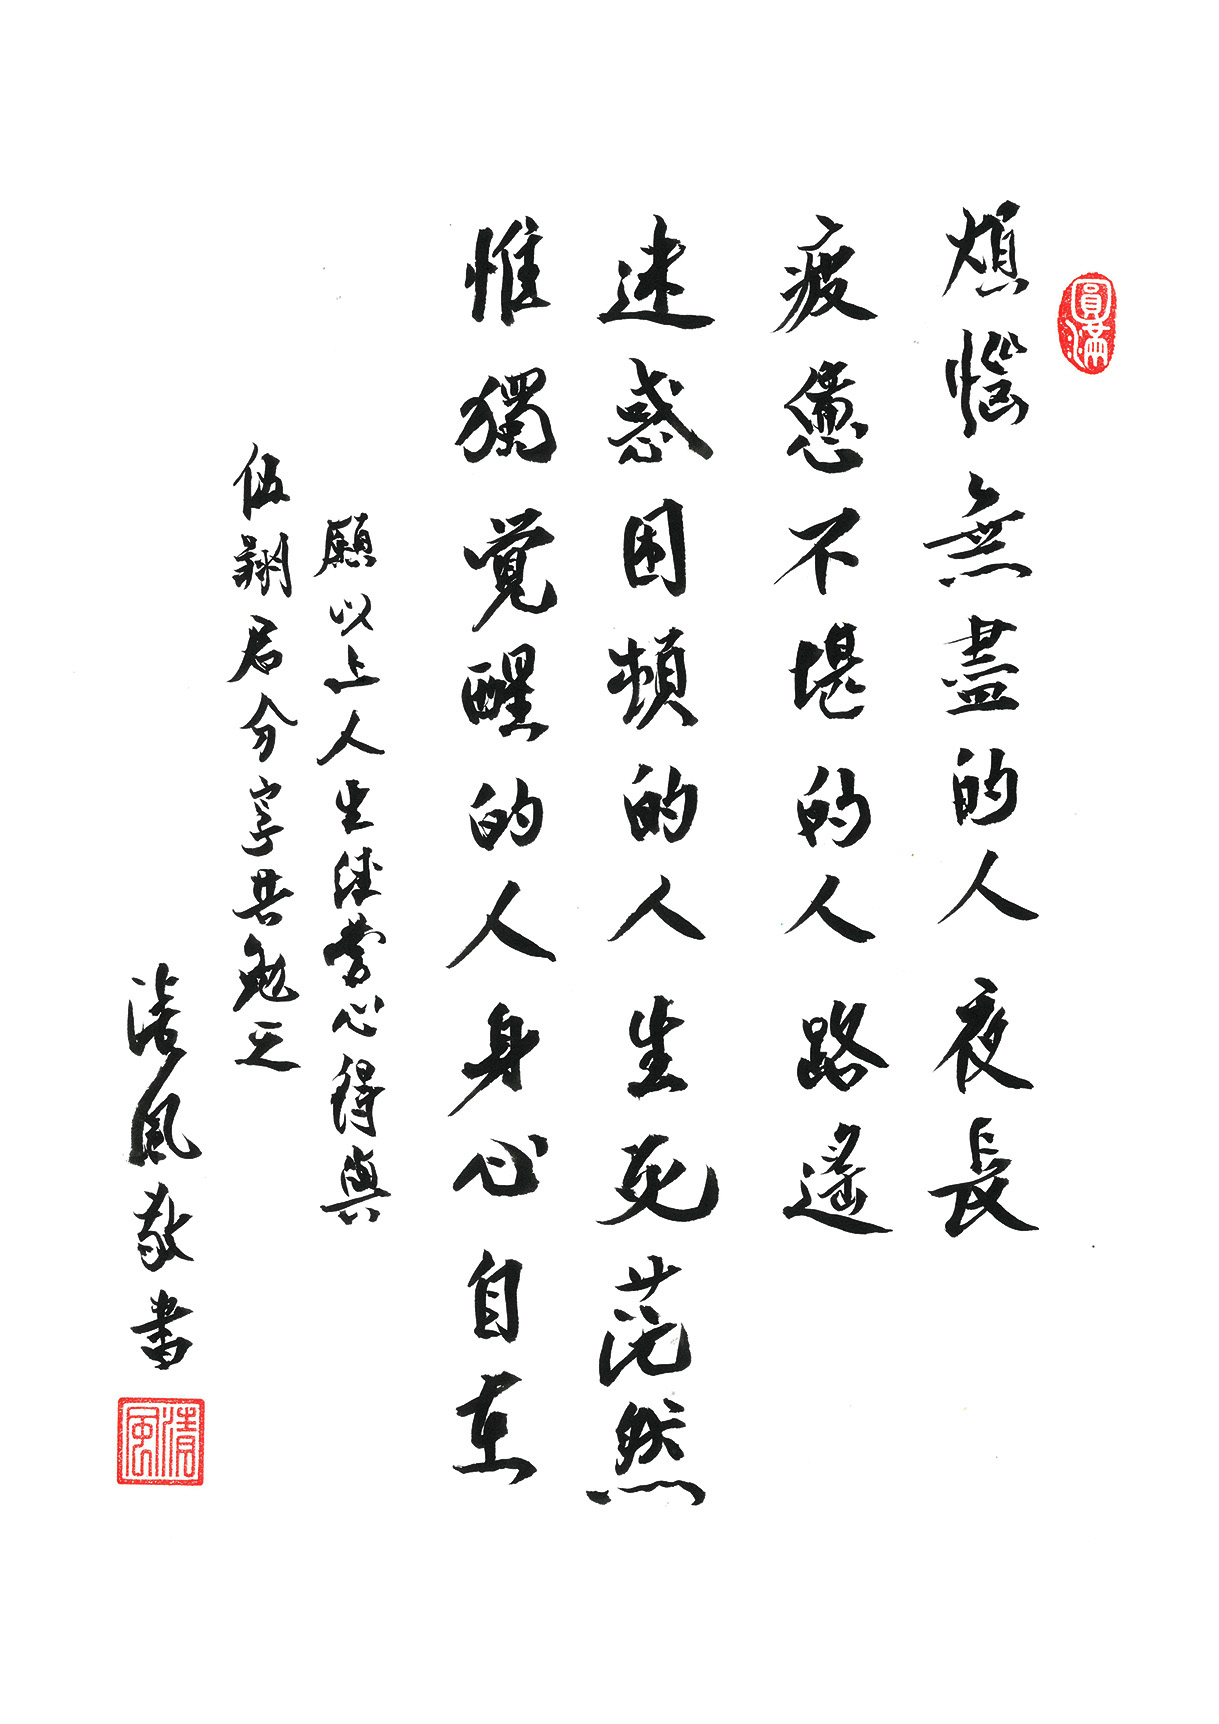 圓滿
煩惱無盡的人夜長
疲憊不堪的人路遙
迷惑困頓的人生死茫然
惟獨覺醒的人身心自在
願以上人生經營心得與
伍翔君分享共勉之
清風敬書
清風